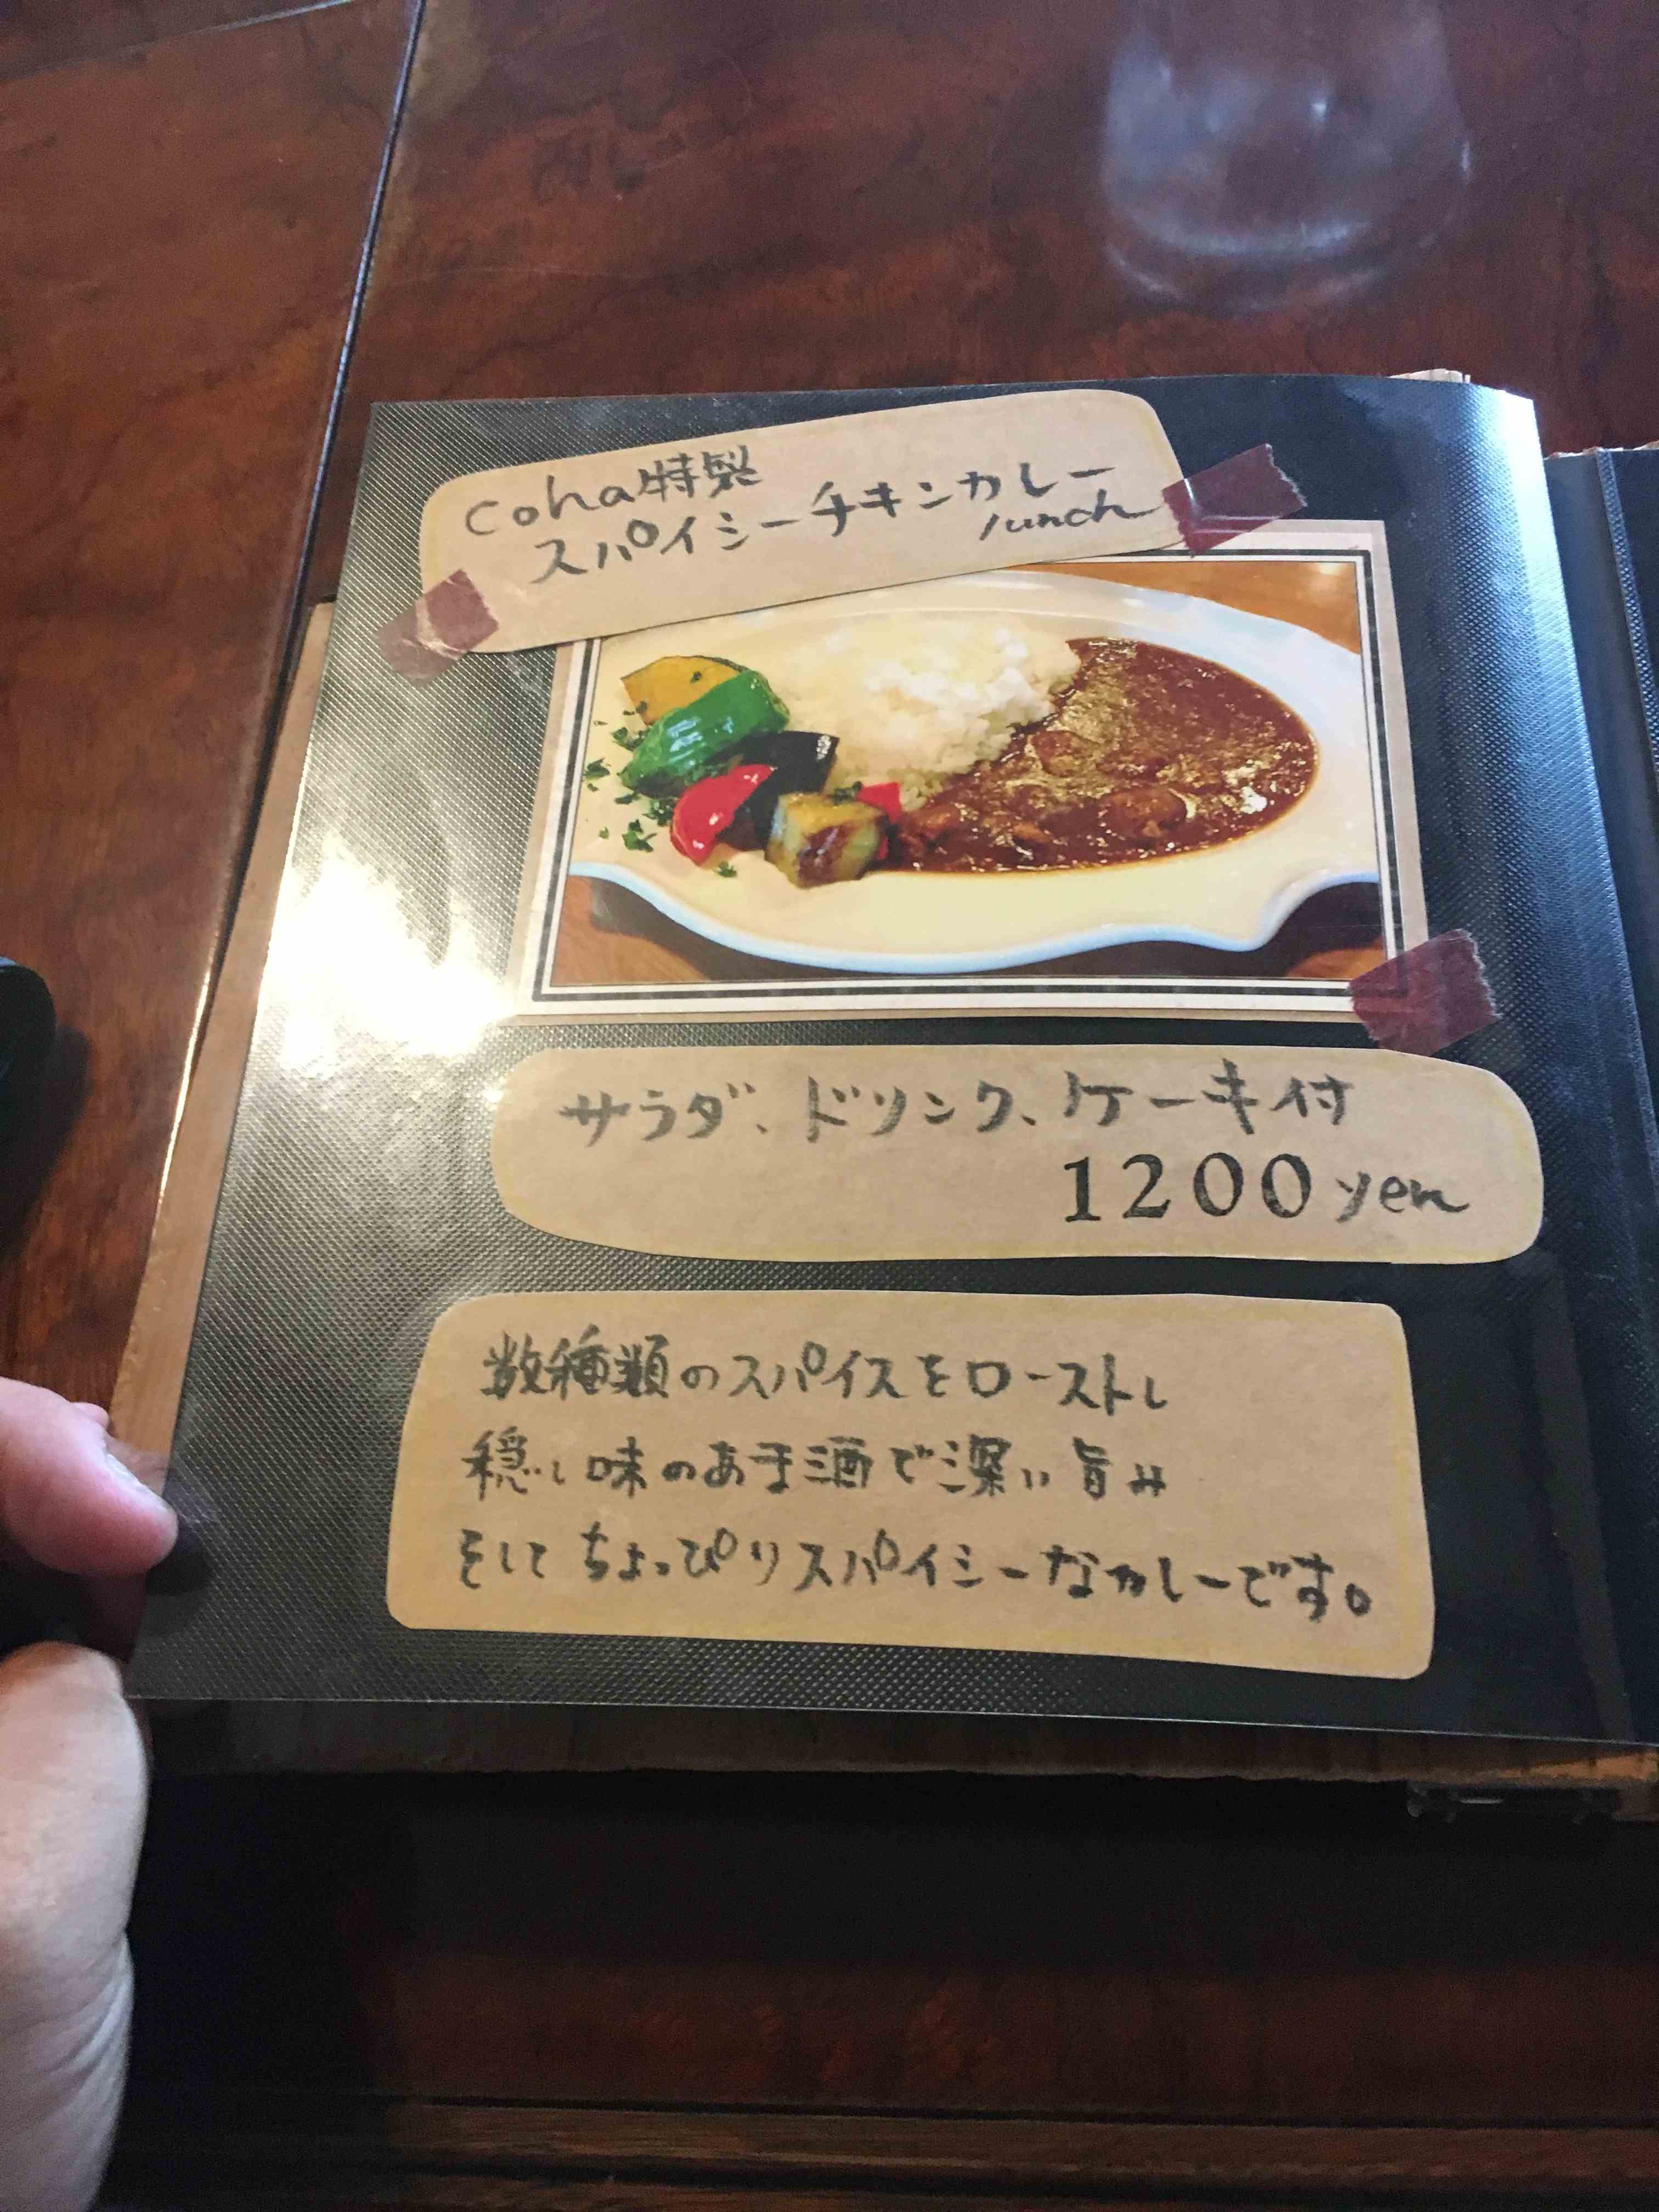 coha特製
スパイシーチキンカレー
lunch
サラダ、ドリンク、ケーキ付
1200yen
数種類のスパイスをローストし
隠し味のあま酒で深い旨み
そして ちょっぴりスパイシーなカレーです。